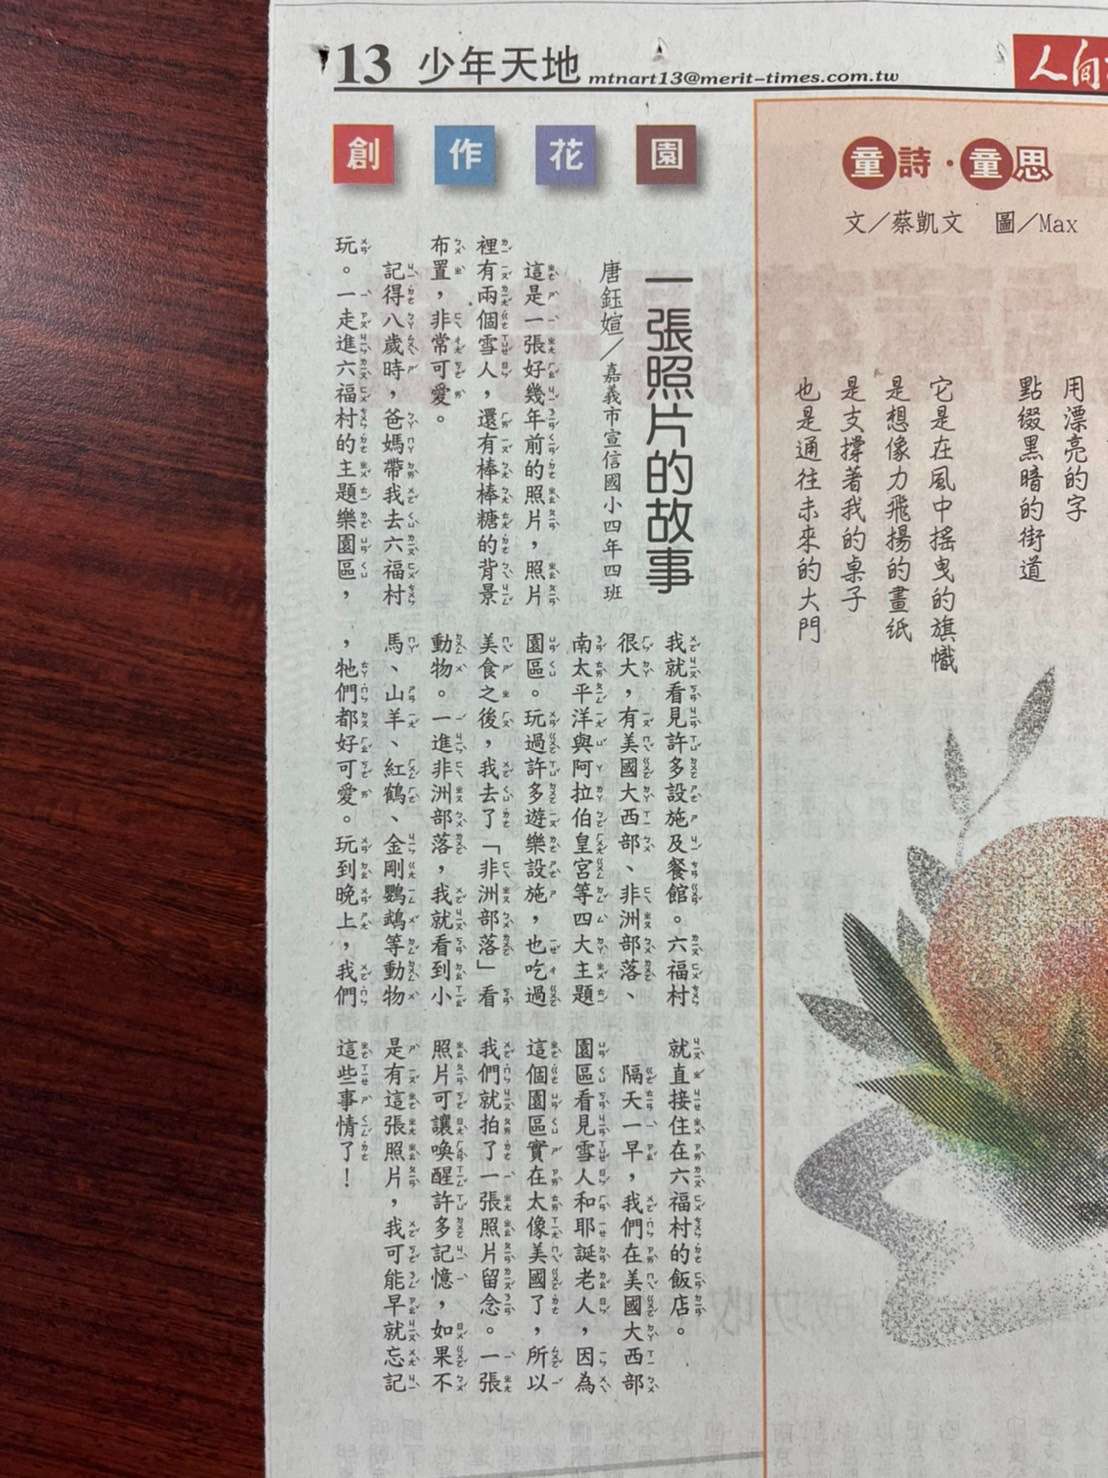 13 少年天地 mtnart13@merit-times.com.tw
人間
創作花園
一張照片的故事
唐鈺媗／嘉義市宣信國小四年四班
這是一張好幾年前的照片，照片
裡有兩個雪人，還有棒棒糖的背景
布置，非常可愛。
記得八歲時，爸媽帶我去六福村
玩。一走進六福村的主題樂園區，
我就看見許多設施及餐館。六福村
很大，有美國大西部、非洲部落、
南太平洋與阿拉伯皇宮等四大主題
園區。玩過許多遊樂設施，也吃過
美食之後，我去了「非洲部落」看
動物。一進非洲部落，我就看到小
馬、山羊、紅鶴、金剛鸚鵡等動物
，牠們都好可愛。玩到晚上，我們
就直接住在六福村的飯店。
隔天一早，我們在美國大西部
園區看見雪人和耶誕老人，因為
這個園區實在太像美國了，所以
我們就拍了一張照片留念。一張
照片可讓喚醒許多記憶，如果不
是有這張照片，我可能早就忘記
這些事情了！
童詩・童思
文／蔡凱文 圖／Max
用漂亮的字
點綴黑暗的街道
它是在風中搖曳的旗幟
是想像力飛揚的畫紙
是支撐著我的桌子
也是通往未來的大門